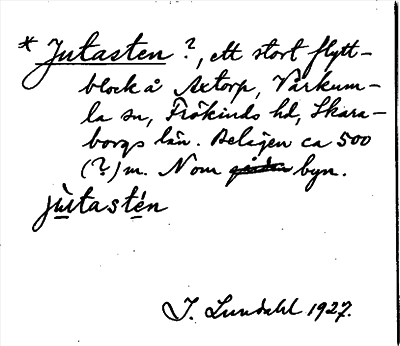 * Jutasten ?, ett stort flytt-
block å Axtorp, Vårkum-
la sn, Frökinds hd, Skara-
borgs län. Belägen ca 500
(?) m. N om gården byn.
jùtastén
J. Lundahl 1927.